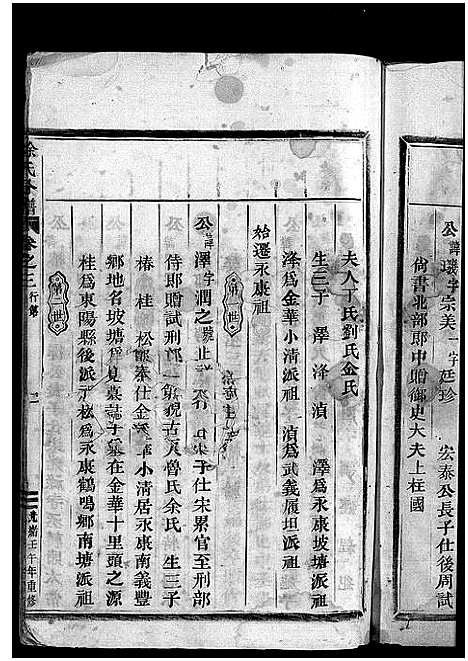 公諱璣字宗美一字廷珍 宏泰公長子仕後周試
尚書北部郎中贈御史大夫上柱國
夫人丁氏劉氏金氏
生三子 澤 滌 滇 澤爲永康坡塘派祖
滌爲金華小清派祖 滇爲武義履坦派祖
始遷永康祖
第一世
公諱澤字潤之 子仕宋累官至刑部
侍郎贈試刑部 魯氏余氏 生三子
椿 桂 松 仕金 小清居永康南義豐
鄉地名坡塘 見墓誌 在金華十里頭之源
桂爲東陽縣後派 松爲永康鶴鳴鄉南塘派祖
第二世
徐氏合譜 卷之三 行第 二 嘉壬午年重修